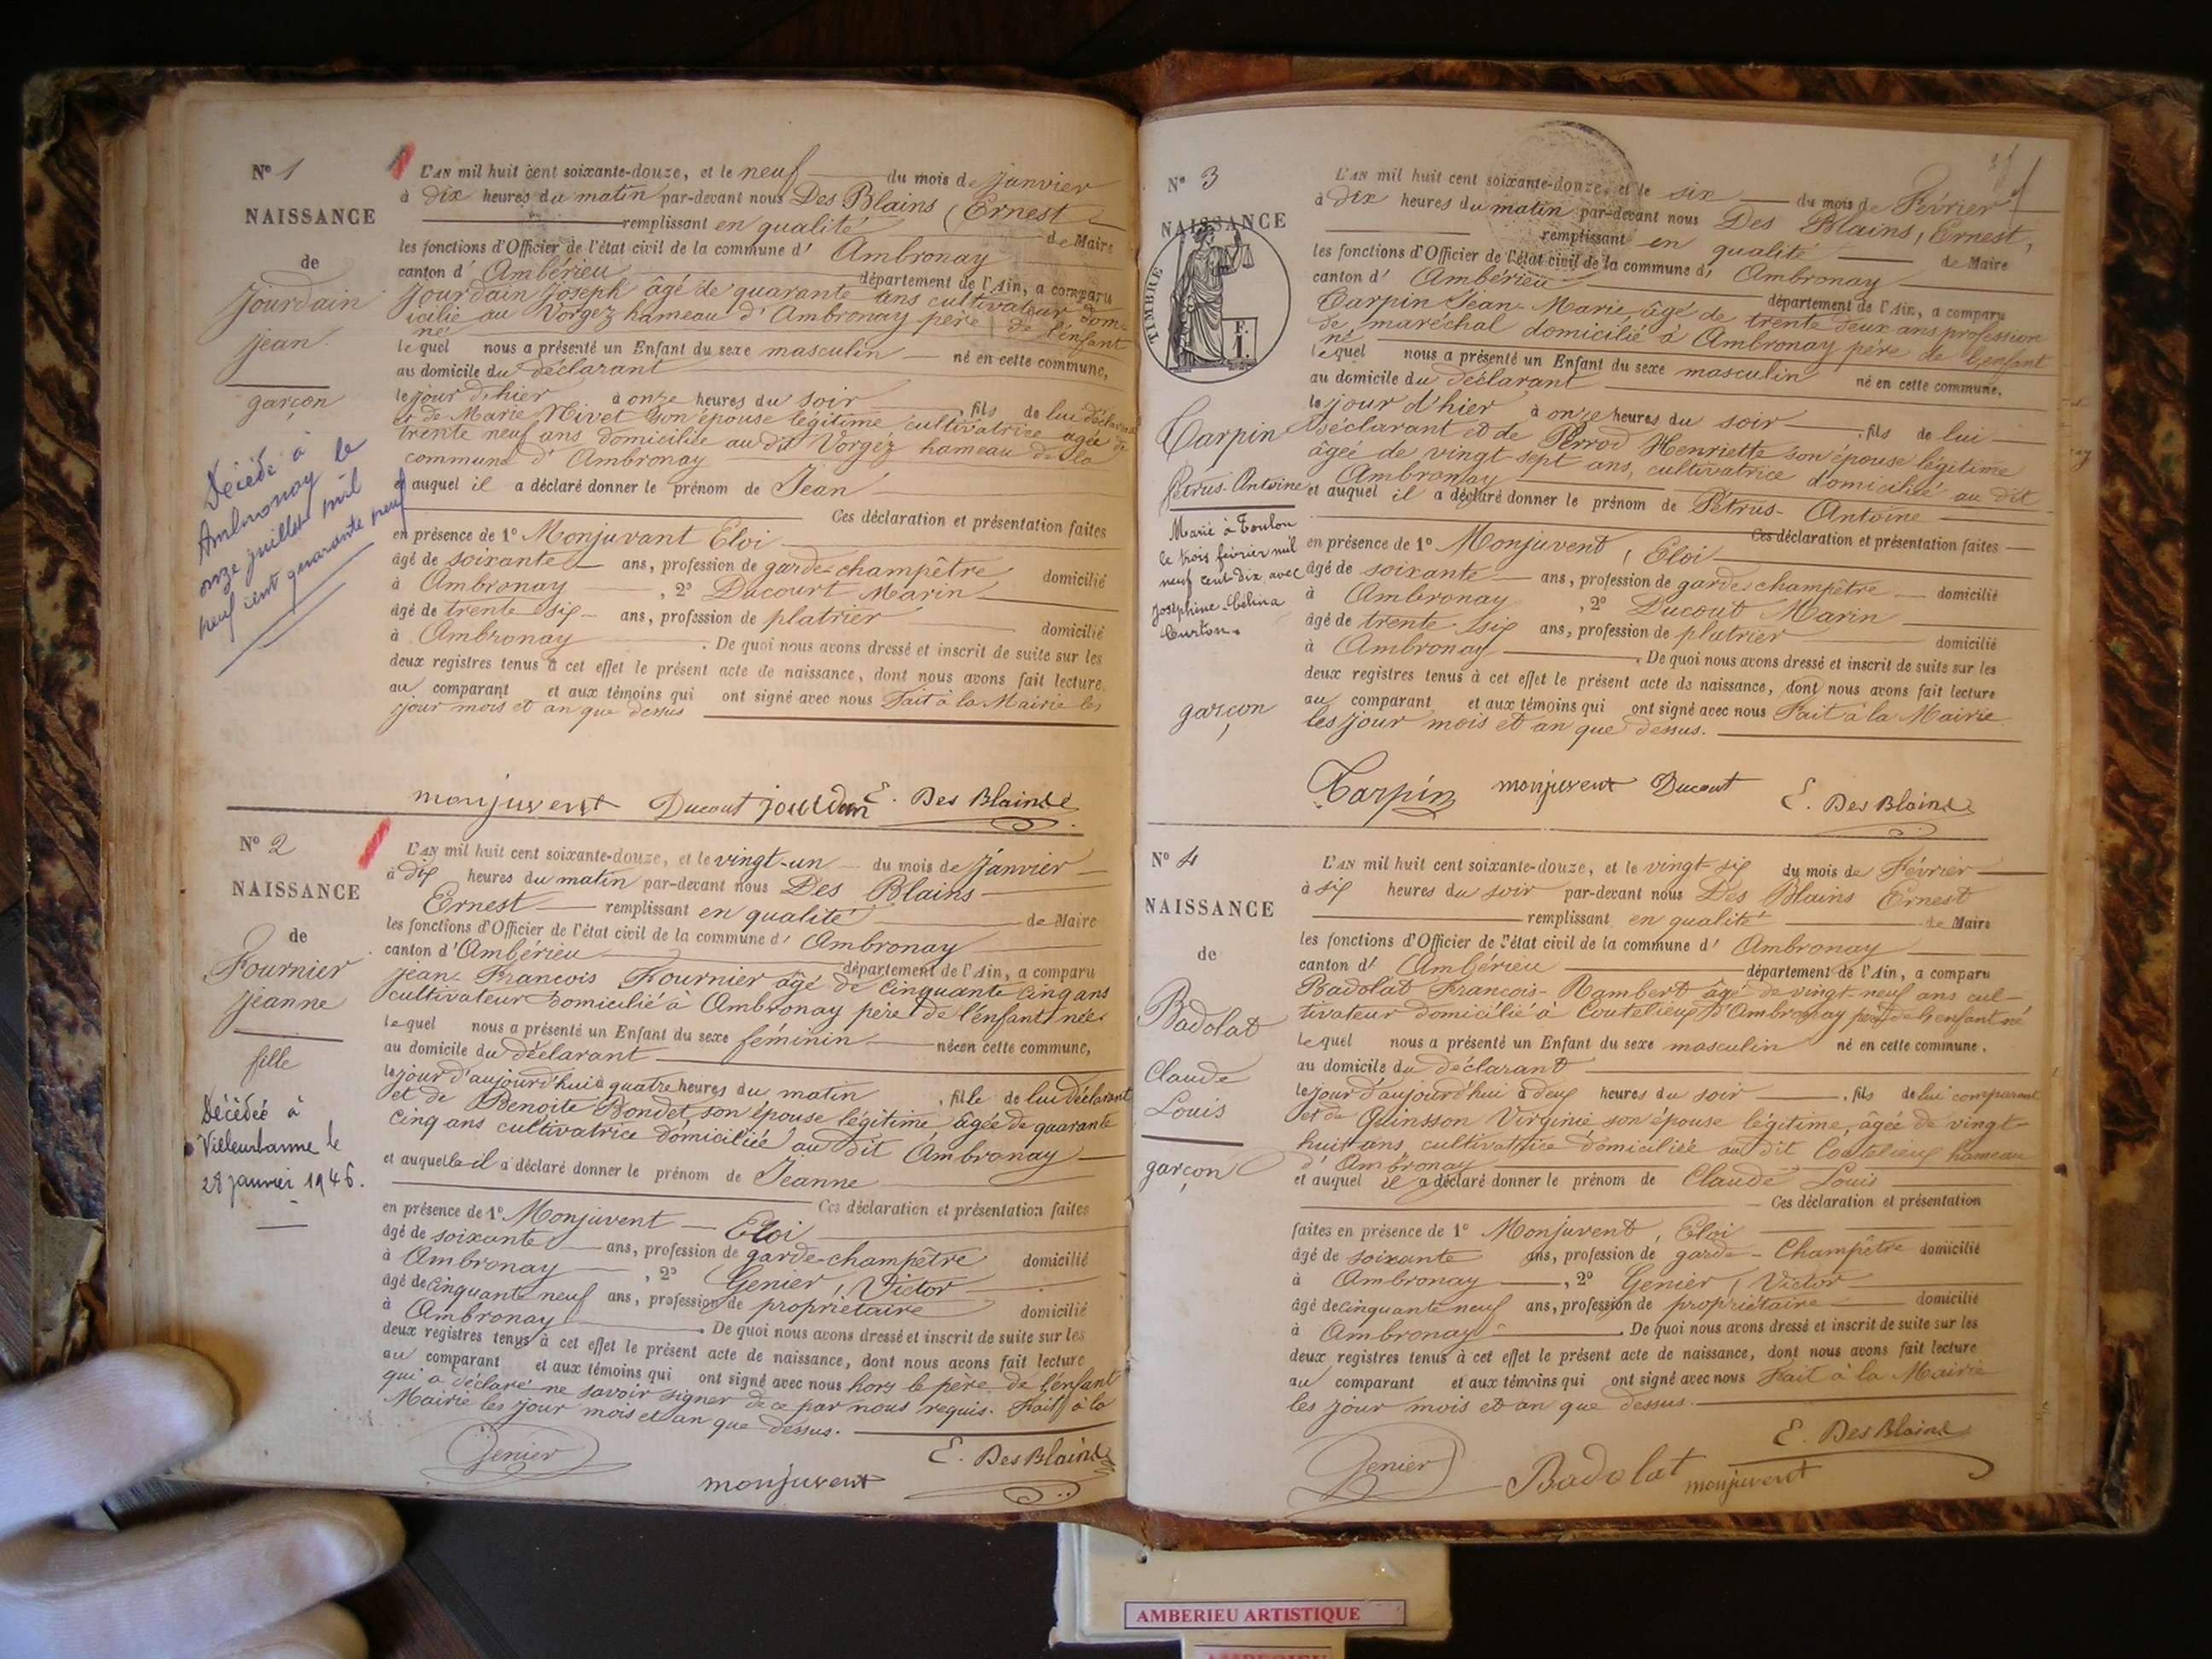 N° 1
NAISSANCE
de
Jourdain
Jean
garçon
Décédé à
Ambronay le
onze juillet mil
neuf cent quarante neuf
L'AN mil huit cent soixante-douze, et le neuf du mois de Janvier
à dix heures du matin par-devant nous Des Blains (Ernest
remplissant en qualité de Maire
les fonctions d'Officier de l'état civil de la commune d' Ambronay
canton d' Ambérieu département de l'Ain, a comparu
Jourdain Joseph âgé de quarante ans cultivateur dom-
icilié au Vorgez hameau d'Ambronay père de l'enfant
né
lequel nous a présenté un Enfant du sexe masculin né en cette commune,
au domicile du déclarant
le jour d'hier à onze heures du soir fils de lui déclarant
et de Marie Nivet son épouse légitime, cultivatrice agée de
trente neuf ans domiciliée au dit Vorgez hameau de la
commune d'Ambronay
et auquel il a déclaré donner le prénom de Jean
Ces déclaration et présentation faites
en présence de 1° Monjuvant Eloi
âgé de soixante ans, profession de garde-champêtre domicilié
à Ambronay , 2° Ducourt Marin
âgé de trente six ans, profession de platrier domicilié
à Ambronay . De quoi nous avons dressé et inscrit de suite sur les
deux registres tenus à cet effet le présent acte de naissance, dont nous avons fait lecture
au comparant et aux témoins qui ont signé avec nous Fait à la Mairie les
jour mois et an que dessus
monjuvent Ducout jourdain E. Des Blains
N° 2
NAISSANCE
de
Fournier
Jeanne
fille
Décédée à
Villeurbanne le
28 janvier 1946.
L'AN mil huit cent soixante-douze, et le vingt-un du mois de Janvier
à dix heures du matin par-devant nous Des Blains
Ernest remplissant en qualité de Maire
les fonctions d'Officier de l'état civil de la commune d' Ambronay
canton d'Ambérieu département de l'Ain, a comparu
Jean-François Fournier âgé de cinquante cinq ans
cultivateur domicilié à Ambronay père de l'enfant née
lequel nous a présenté un Enfant du sexe féminin née en cette commune,
au domicile du déclarant
le jour d'aujourd'hui à quatre heures du matin , fille de lui déclarant
et de Benoite Bondet, son épouse légitime âgée de quarante
cinq ans cultivatrice domiciliée au dit Ambronay
et auquelle il a déclaré donner le prénom de Jeanne
Ces déclaration et présentation faites
en présence de 1° Monjuvent Eloi
âgé de soixante ans, profession de garde-champêtre domicilié
à Ambronay , 2° Genier, Victor
âgé de cinquante neuf ans, profession de propriétaire domicilié
à Ambronay . De quoi nous avons dressé et inscrit de suite sur les
deux registres tenus à cet effet le présent acte de naissance, dont nous avons fait lecture
au comparant et aux témoins qui ont signé avec nous hors le père de l'enfant
qui a déclaré ne savoir signer de ce par nous requis. Fait à la
Mairie les jour mois et an que dessus.
Genier monjuvent E. Des Blains
N° 3
NAISSANCE
TIMBRE
F.
1.
Carpin
Pétrus-Antoine
Marié à Toulon
le trois février mil
neuf cent dix avec
Joséphine Célina
Curton.
garçon
L'AN mil huit cent soixante-douze, et le six du mois de Février
à dix heures du matin par-devant nous Des Blains, Ernest,
remplissant en qualité de Maire
les fonctions d'Officier de l'état civil de la commune d' Ambronay
canton d' Ambérieu département de l'Ain, a comparu
Carpin Jean-Marie, âgé de trente deux ans profession
de maréchal domicilié à Ambronay père de l'enfant
né
lequel nous a présenté un Enfant du sexe masculin né en cette commune,
au domicile du déclarant
le jour d'hier à onze heures du soir , fils de lui
déclarant et de Perrod Henriette son épouse légitime
âgée de vingt-sept ans, cultivatrice domiciliée au dit
Ambronay
et auquel il a déclaré donner le prénom de Pétrus-Antoine
Ces déclaration et présentation faites
en présence de 1° Monjuvent, Eloi
âgé de soixante ans, profession de garde-champêtre domicilié
à Ambronay , 2° Ducout Marin
âgé de trente six ans, profession de platrier domicilié
à Ambronay . De quoi nous avons dressé et inscrit de suite sur les
deux registres tenus à cet effet le présent acte de naissance, dont nous avons fait lecture
au comparant et aux témoins qui ont signé avec nous Fait à la Mairie
les jour mois et an que dessus.
Carpin monjuvent Ducout E. Des Blains
N° 4
NAISSANCE
de
Badolat
Claude
Louis
garçon
L'AN mil huit cent soixante-douze, et le vingt-six du mois de Février
à six heures du soir par-devant nous Des Blains Ernest
remplissant en qualité de Maire
les fonctions d'Officier de l'état civil de la commune d' Ambronay
canton d' Ambérieu département de l'Ain, a comparu
Badolat François-Rambert âgé de vingt-neuf ans cul-
tivateur domicilié à Coutelieux d'Ambronay père de l'enfant né
lequel nous a présenté un Enfant du sexe masculin né en cette commune,
au domicile du déclarant
le jour d'aujourd'hui à deux heures du soir , fils de lui comparant
et de Virginie son épouse légitime, âgée de vingt-
huit ans, cultivatrice domiciliée au dit Coutelieux hameau
d'Ambronay
et auquel il a déclaré donner le prénom de Claude Louis
Ces déclaration et présentation
faites en présence de 1° Monjuvent, Eloi
âgé de soixante ans, profession de garde-Champêtre domicilié
à Ambronay , 2° Genier, Victor
âgé de cinquante neuf ans, profession de propriétaire domicilié
à Ambronay . De quoi nous avons dressé et inscrit de suite sur les
deux registres tenus à cet effet le présent acte de naissance, dont nous avons fait lecture
au comparant et aux témoins qui ont signé avec nous Fait à la Mairie
les jour mois et an que dessus.
Genier Badolat monjuvent E. Des Blains
AMBERIEU ARTISTIQUE
AMBERIEU